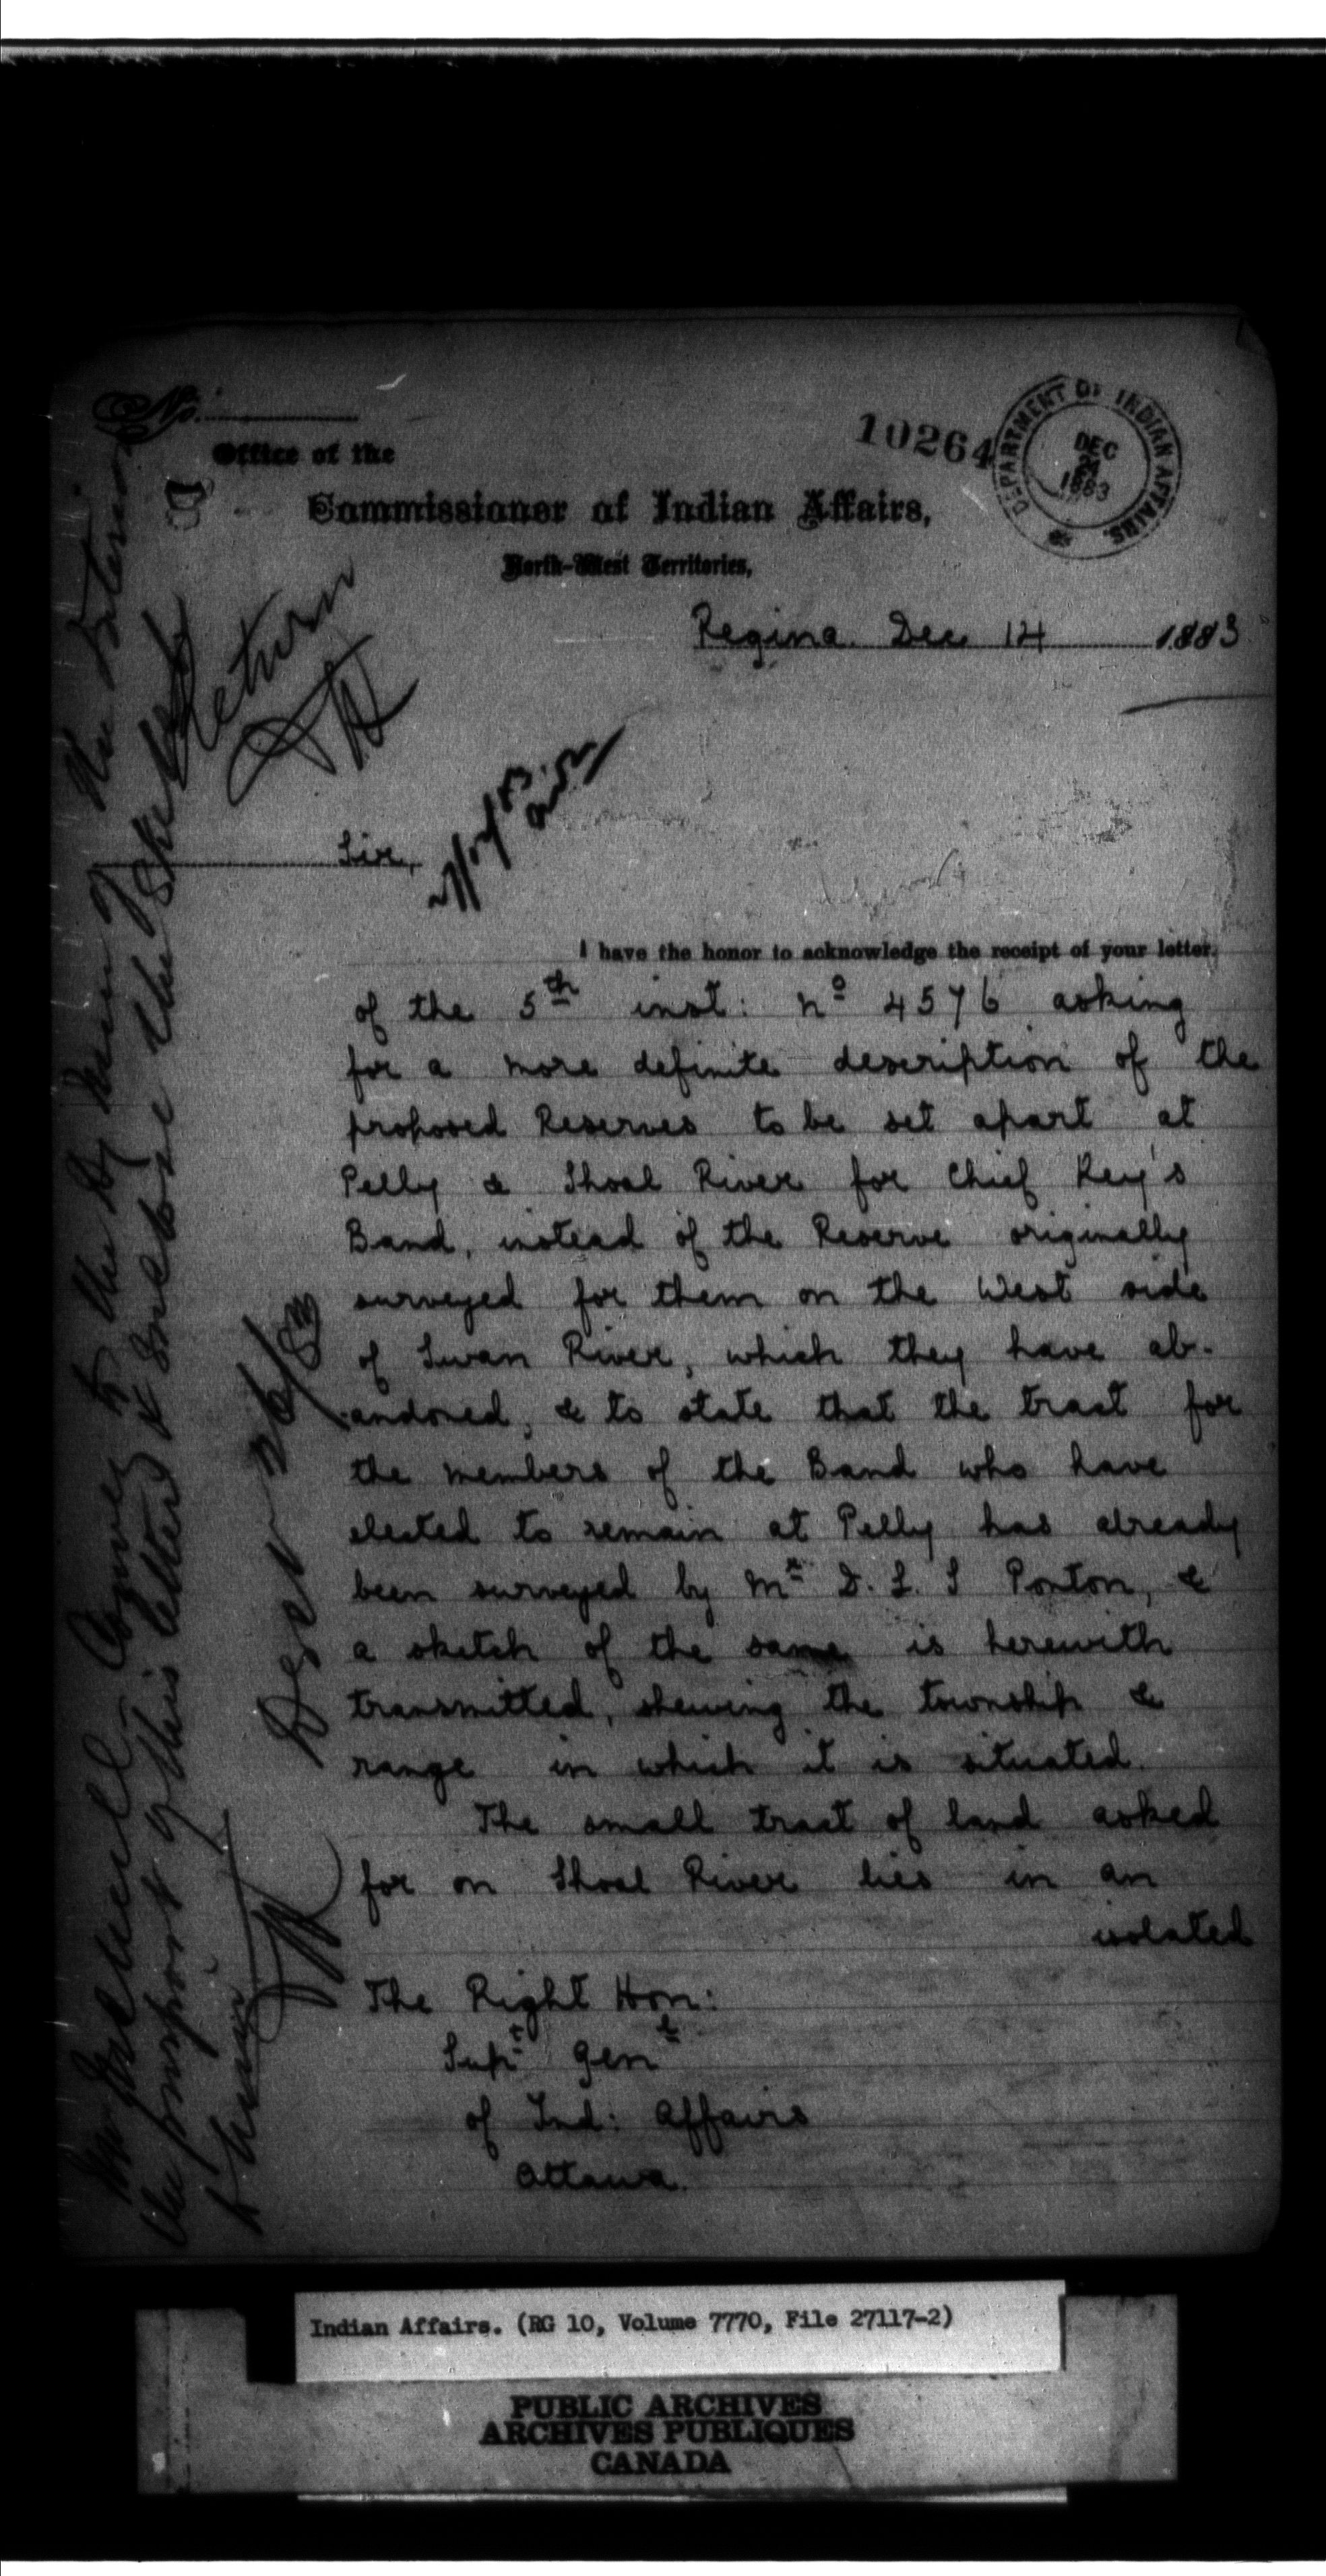 No.
10264
DEPARTMENT OF INDIAN AFFAIRS.
DEC
24
1883
Office of the
Commissioner of Indian Affairs,
North-West Territories,
Regina. Dec 14 1883
Return
Sir,
I have the honor to acknowledge the receipt of your letter
of the 5th inst: no 4576 asking
for a more definite description of the
proposed Reserves to be set apart at
Pelly & Shoal River for Chief Key's
Band, instead of the Reserve originally
surveyed for them on the West side
of Swan River, which they have ab-
andoned, & to state that the tract for
the members of the Band who have
elected to remain at Pelly has already
been surveyed by Mr D. L. S Ponton, &
a sketch of the same is herewith
transmitted, shewing the township &
range in which it is situated.
The small tract of land asked
for on Shoal River lies in an
isolated
The Right Hon:
Supt Genl
of Ind: Affairs
Ottawa.
the purport of this letter & enclose the sketch
Indian Affairs. (RG 10, Volume 7770, File 27117-2)
PUBLIC ARCHIVES
ARCHIVES PUBLIQUES
CANADA